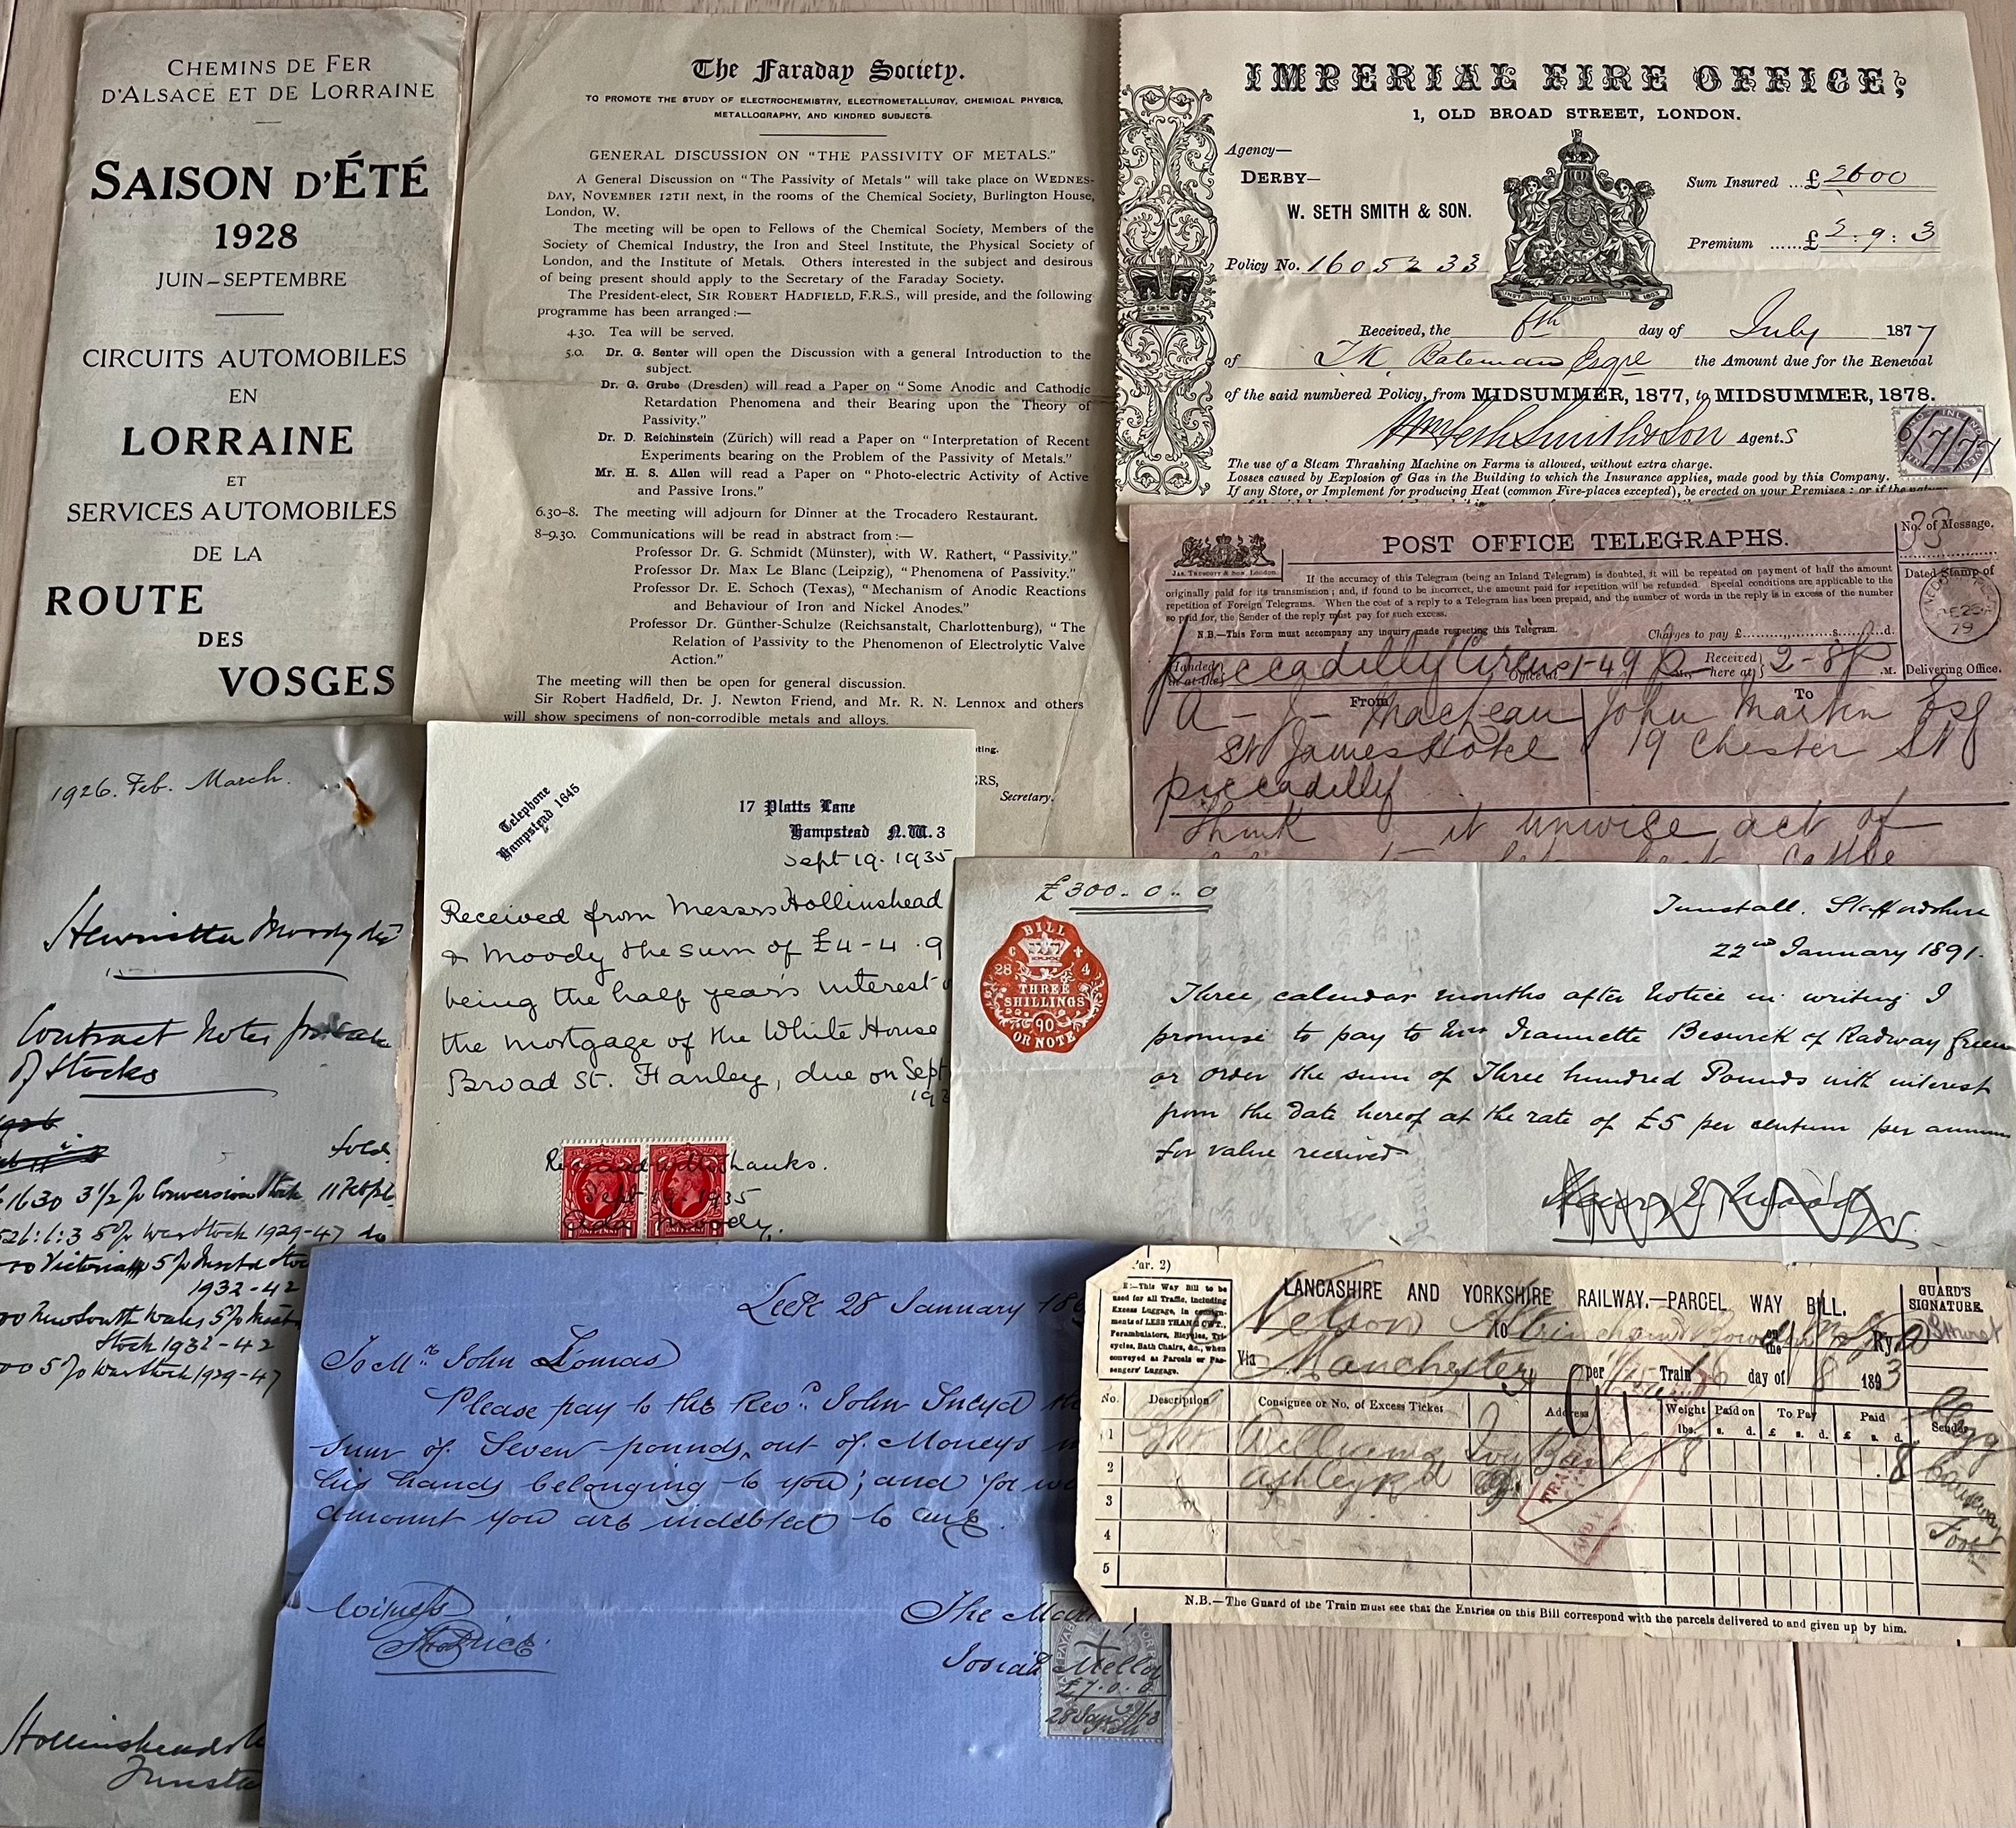 CHEMINS DE FER
D'ALSACE ET DE LORRAINE
SAISON D'ÉTÉ
1928
JUIN – SEPTEMBRE
CIRCUITS AUTOMOBILES
EN
LORRAINE
ET
SERVICES AUTOMOBILES
DE LA
ROUTE
DES
VOSGES
The Faraday Society.
TO PROMOTE THE STUDY OF ELECTROCHEMISTRY, ELECTROMETALLURGY, CHEMICAL PHYSICS,
METALLOGRAPHY, AND KINDRED SUBJECTS.
GENERAL DISCUSSION ON "THE PASSIVITY OF METALS."
A General Discussion on "The Passivity of Metals" will take place on WEDNES-
DAY, NOVEMBER 12TH next, in the rooms of the Chemical Society, Burlington House,
London, W.
The meeting will be open to Fellows of the Chemical Society, Members of the
Society of Chemical Industry, the Iron and Steel Institute, the Physical Society of
London, and the Institute of Metals. Others interested in the subject and desirous
of being present should apply to the Secretary of the Faraday Society.
The President-elect, SIR ROBERT HADFIELD, F.R.S., will preside, and the following
programme has been arranged :—
4.30. Tea will be served.
5.0. Dr. G. Senter will open the Discussion with a general Introduction to the
subject.
Dr. G. Grube (Dresden) will read a Paper on "Some Anodic and Cathodic
Retardation Phenomena and their Bearing upon the Theory of
Passivity."
Dr. D. Reichinstein (Zürich) will read a Paper on "Interpretation of Recent
Experiments bearing on the Problem of the Passivity of Metals."
Mr. H. S. Allen will read a Paper on "Photo-electric Activity of Active
and Passive Irons."
6.30–8. The meeting will adjourn for Dinner at the Trocadero Restaurant.
8–9.30. Communications will be read in abstract from :—
Professor Dr. G. Schmidt (Münster), with W. Rathert, "Passivity."
Professor Dr. Max Le Blanc (Leipzig), "Phenomena of Passivity."
Professor Dr. E. Schoch (Texas), "Mechanism of Anodic Reactions
and Behaviour of Iron and Nickel Anodes."
Professor Dr. Günther-Schulze (Reichsanstalt, Charlottenburg), "The
Relation of Passivity to the Phenomenon of Electrolytic Valve
Action."
The meeting will then be open for general discussion.
Sir Robert Hadfield, Dr. J. Newton Friend, and Mr. R. N. Lennox and others
will show specimens of non-corrodible metals and alloys.
Secretary.
IMPERIAL FIRE OFFICE;
1, OLD BROAD STREET, LONDON.
Agency—
DERBY—
W. SETH SMITH & SON.
Policy No. 1605233
Sum Insured ...£ 2600
Premium ......£ 2 : 9 : 3
Received, the 6th day of July 1877
of T. K. Bateman Esqre the Amount due for the Renewal
of the said numbered Policy, from MIDSUMMER, 1877, to MIDSUMMER, 1878.
Wm Seth Smith & Son Agent.s
6/7/77
The use of a Steam Thrashing Machine on Farms is allowed, without extra charge.
Losses caused by Explosion of Gas in the Building to which the Insurance applies, made good by this Company.
If any Stove, or Implement for producing Heat (common Fire-places excepted), be erected on your Premises : or if the nature
POST OFFICE TELEGRAPHS.
No. of Message.
JAS. TRUSCOTT & SON, London.
If the accuracy of this Telegram (being an Inland Telegram) is doubted, it will be repeated on payment of half the amount
originally paid for its transmission ; and, if found to be incorrect, the amount paid for repetition will be refunded. Special conditions are applicable to the
repetition of Foreign Telegrams. When the cost of a reply to a Telegram has been prepaid, and the number of words in the reply is in excess of the number
so paid for, the Sender of the reply must pay for such excess.
N.B.—This Form must accompany any inquiry made respecting this Telegram.
Charges to pay £ s. d.
Dated Stamp of
79
Delivering Office.
Handed in at the Piccadilly Circus Office at 1-49 p M. Received here at 2-8 p .M.
From To
A - J - Maclean John Martin Esq
St James Hotel 19 Chester St
Piccadilly
Think it unwise act of
cattle
1926. Feb. March.
Henrietta Moody decd
Contract Notes for sale
of Stocks
1926
Sold
1630 3½ p Conversion Stock 11 Feb
526 : 1 : 3 5 % War Stock 1929-47 do
Victoria 5 %
1932-42
New South Wales 5 %
Stock 1932-42
5 % War Stock 1929-47
Hollinshead
Telephone
Hampstead 1645
17 Platts Lane
Hampstead N.W. 3
Sept 19. 1935
Received from Messrs Hollinshead
& Moody the sum of £4-4.9
being the half year's interest
the mortgage of the White House
Broad St. Hanley, due on Sept
Received with Thanks.
Sept 19. 1935
Ada Moody.
ONE PENNY ONE PENNY
£300..0..0
BILL
28 4
THREE
SHILLINGS
90
OR NOTE
Tunstall. Staffordshire
22nd January 1891.
Three calendar months after notice in writing I
promise to pay to Mrs Jeannette Beswick of Radway Green
or order the sum of Three hundred Pounds with interest
from the date hereof at the rate of £5 per centum per annum
for value received
Leek 28 January
To Mr. John Lomas
Please pay to the Revd. John Sneyd the
sum of Seven pounds, out of Moneys
his hands belonging to you; and for
amount you are indebted to me.
Witness
The Mark
X
Josiah Mellor
£7.0.0
28 Jan
LANCASHIRE AND YORKSHIRE RAILWAY.—PARCEL WAY BILL.
GUARD'S
SIGNATURE.
This Way Bill to be
used for all Traffic, including
Excess Luggage, in consign-
ments of LESS THAN 2 CWT.,
Perambulators, Bicycles, Tri-
cycles, Bath Chairs, &c., when
conveyed as Parcels or Pas-
sengers' Luggage.
Nelson to Altrincham & Bowdon on the Ry.
Via Manchester per 1/15 Train 16 day of 8 1893
No. Description Consignee or No. of Excess Ticket Address Weight lbs. Paid on s. d. To Pay £ s. d. Paid £ s. d. Sender
1 Williams Ivy Bank 8 .8
2 Ashley Rd
3
4
5
N.B.—The Guard of the Train must see that the Entries on this Bill correspond with the parcels delivered to and given up by him.